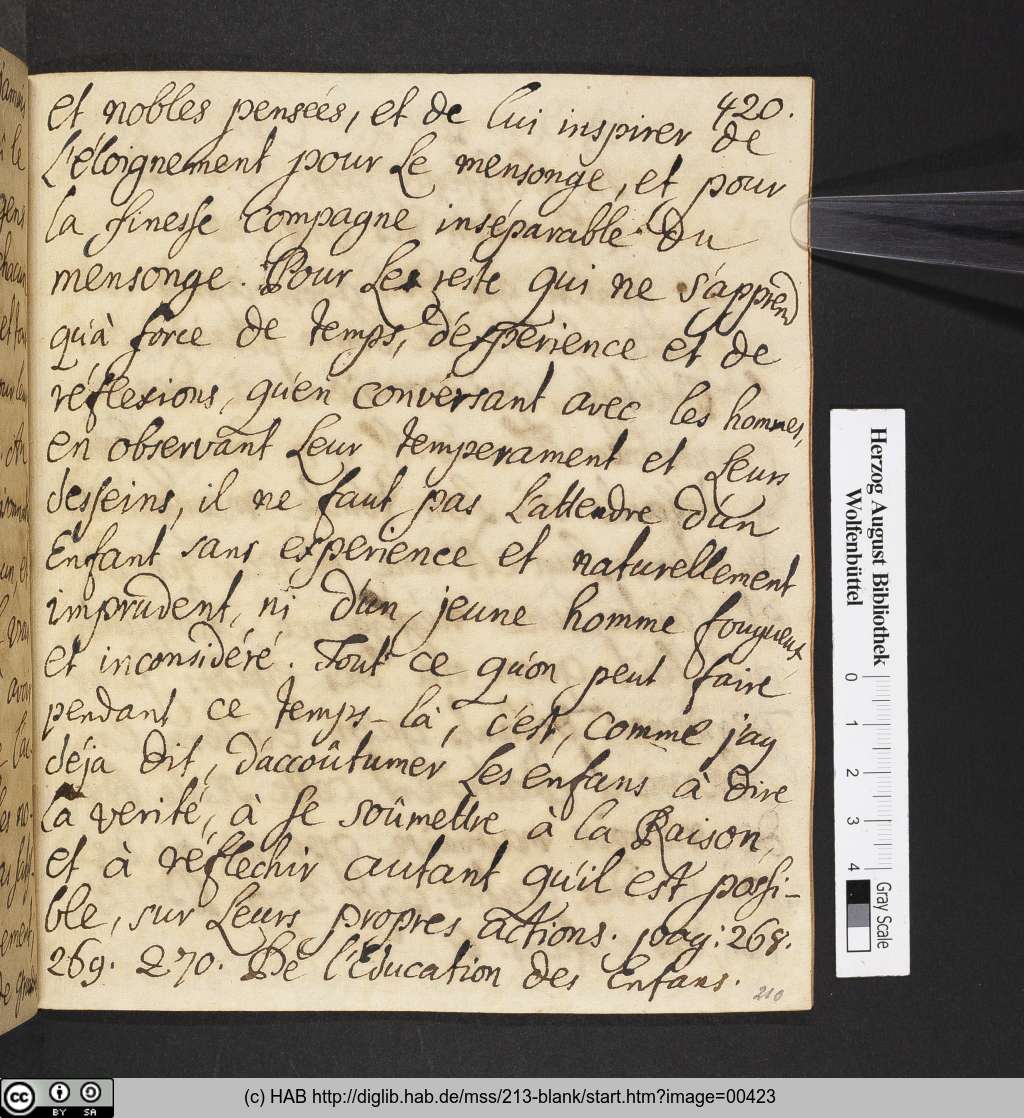 420.
et nobles penseés, et de lui inspirer de
l'éloignement pour le mensonge, et pour
la finesse compagne inséparable du
mensonge. Pour le reste qui ne s'apprend
qu'à force de temps, d'éxperience et de
réflexions, qu'en conversant avec les hommes,
en observant leur temperament et leurs
desseins, il ne faut pas l'attendre d'un
Enfant sans experience et naturellement
imprudent, ni d'un jeune homme fougueux
et inconsidéré. Tout ce qu'on peut faire
pendant ce temps-là, c'est, comme j'ay
déja dit, d'accoûtumer les enfans à dire
la verité, à se soûmettre à la Raison,
et à réflechir autant qu'il est possi-
ble, sur leurs propres actions. pag: 268.
269. 270. De l'Education des Enfans.
210
Herzog August Bibliothek
Wolfenbüttel
0 1 2 3 4
Gray Scale
cc BY SA
(c) HAB http://diglib.hab.de/mss/213-blank/start.htm?image=00423